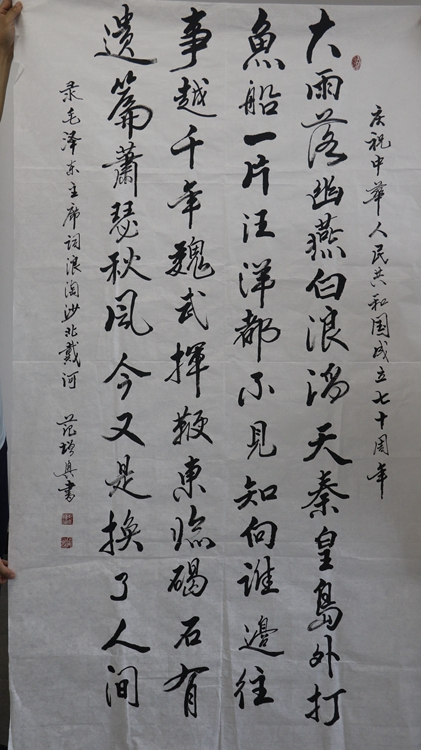 庆祝中華人民共和国成立七十周年
大雨落幽燕白浪滔天秦皇島外打
魚船一片汪洋都不見知向誰邊往
事越千年魏武揮鞭東临碣石有
遗篇蕭瑟秋風今又是换了人间
录毛泽东主席词浪淘沙北戴河 范